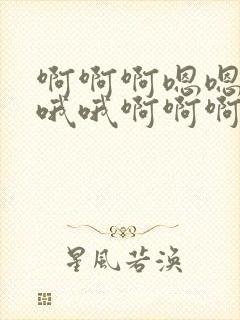 啊啊啊嗯嗯
哦哦啊啊啊
星風若渙